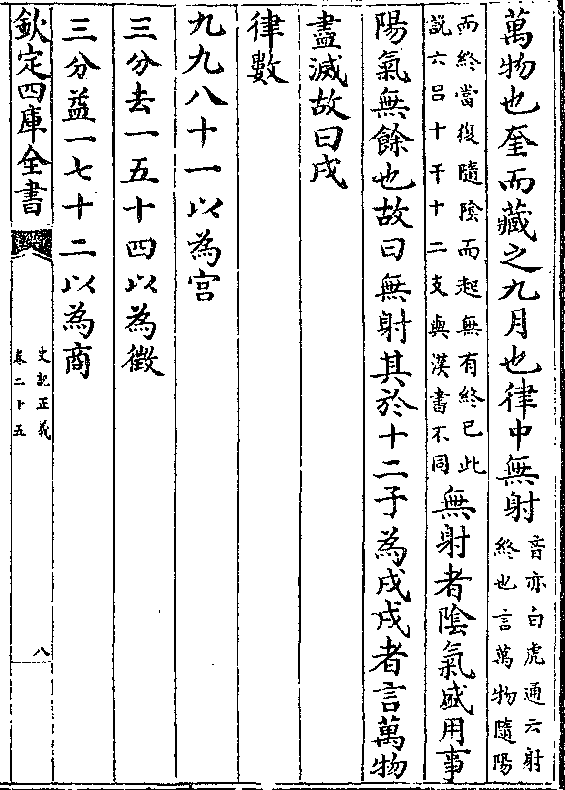 萬物也奎而藏之九月也律中無射音亦白虎通云射終也言萬物隨陽
而終當復隨陰而起無有終已此說六呂十干十二支與漢書不同無射者陰氣盛用事
陽氣無餘也故曰無射其於十二子為戌戌者言萬物
盡滅故曰戌
律數
九九八十一以為宮
三分去一五十四以為徵
三分益一七十二以為商
欽定四庫全書
史記正義
卷二十五
八